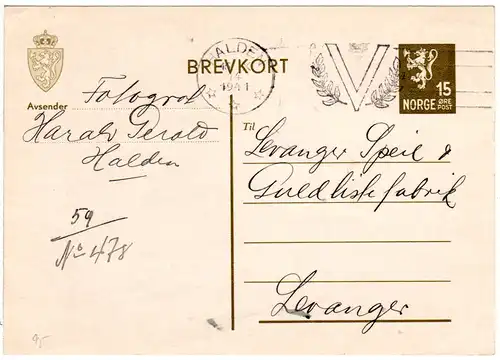 HALDEN
1941
BREVKORT
15
NORGE ØRE
POST
V
Avsender
Fotograf
Harald
Halden
59
No 478
Til
Levanger Speil &
Guldlistefabrik
Levanger
95